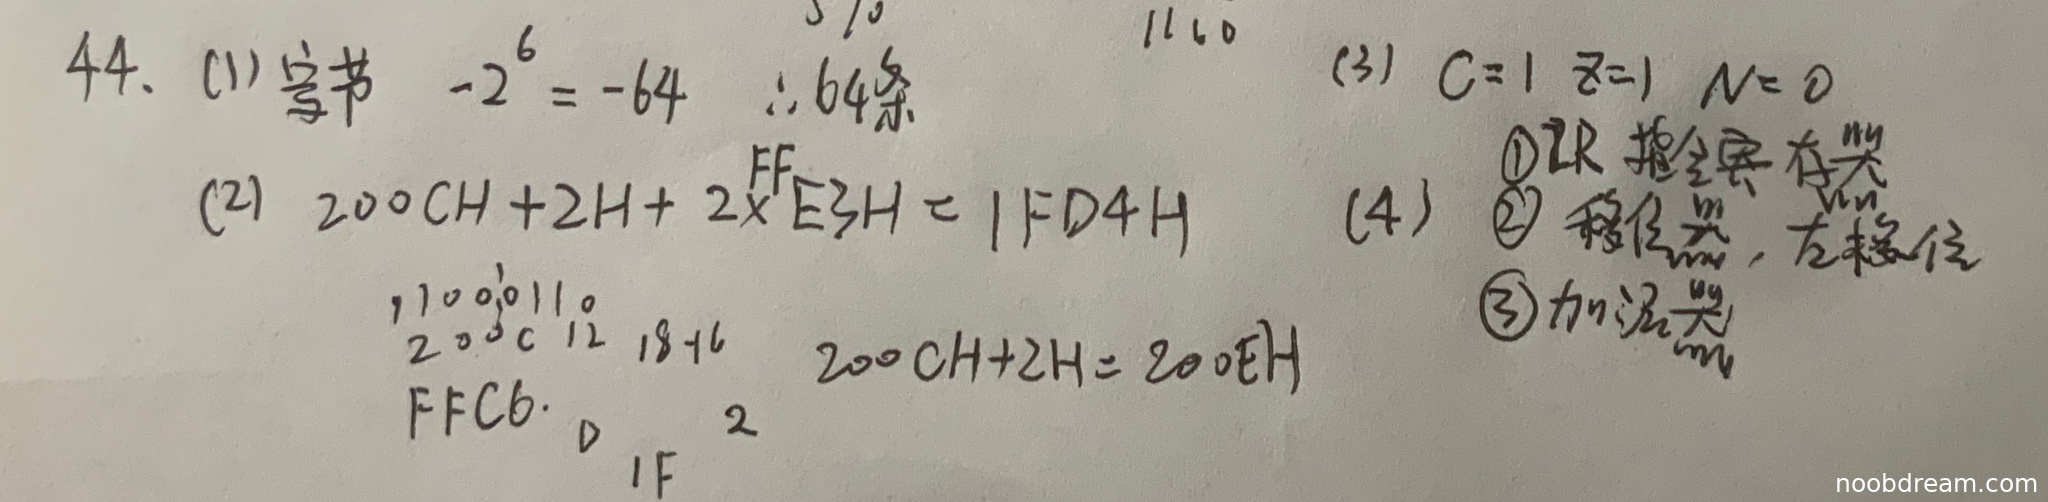 5 % 1160
44. (1) 字节 -2^6 = -64 ∴ 64条
(2) 200CH + 2H + 2×FFE3H = 1FD4H
1100 0110
200C 12 18+16
FFC6. D 2
1F
200CH+2H = 200EH
(3) C=1 Z=1 N=0
(4) ① IR 指令寄存器
② 移位器, 左移位
③ 加法器
noobdream.com